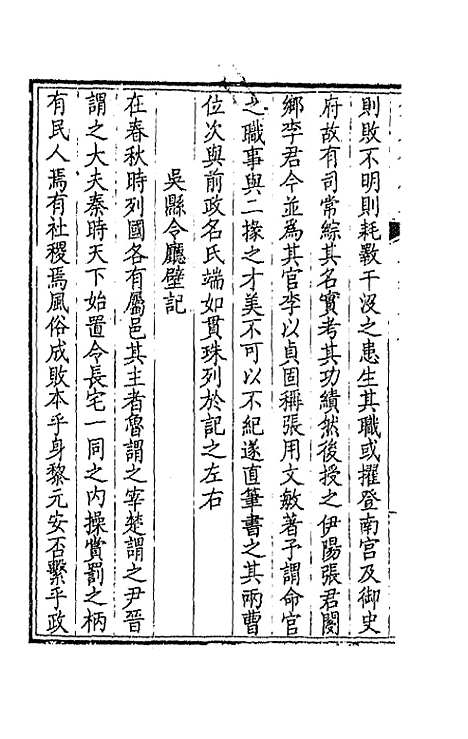 則敗不明則耗斁干沒之患生其職或擢登南宮及御史
府故有司常綜其名實考其功績然後授之伊陽張君閿
鄉李君今並為其官李以貞固稱張用文敏著予謂命官
之職事與二掾之才美不可以不紀遂直筆書之其兩曹
位次與前政名氏端如貫珠列於記之左右
吳縣令廳壁記
在春秋時列國各有屬邑其主者魯謂之宰楚謂之尹晉
謂之大夫秦時天下始置令長宅一同之內操賞罰之柄
有民人焉有社稷焉風俗成敗本乎身黎元安否繫乎政